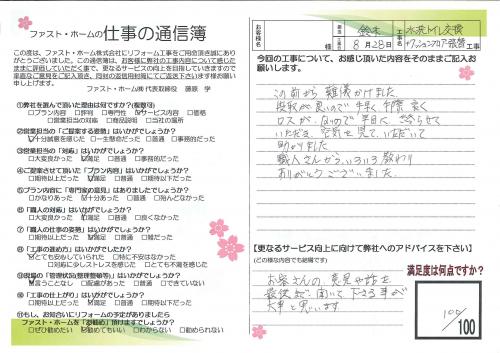 ファスト・ホームの仕事の通信簿
この度は、ファスト・ホーム株式会社にリフォーム工事をご用命頂き誠にあり
がとうございました。この通信簿は、お客様に弊社の工事内容について感じた
ままに評価していただく事で、更なるサービスの向上を目指していきますので
率直なご意見をご記入頂き、同封の返信用封筒にてご返送下さいます様お願い
申し上げます。
ファスト・ホーム㈱ 代表取締役 藤原 学
①弊社を選んで頂いた理由は何ですか?(複数可)
□プラン内容 □評判 □専門性 ☑サービス内容 □価格
□営業担当の対応 □商品説明 □当社の場所
②営業担当の「ご提案する姿勢」はいかがでしょうか?
☑十分誠意を感じた □一生懸命だった □普通 □事務的だった
③営業担当の「対応」はいかがでしょうか?
□大変良かった ☑満足 □普通 □事務的だった
④ご提案させて頂いた「プラン内容」はいかがでしょうか?
□期待以上だった ☑満足 □普通 □期待以下だった
⑤プラン内容に「専門家の意見」はありましたでしょうか?
□かなりあった ☑十分あった □普通 □殆んどなかった
⑥「職人の対応」はいかがでしょうか?
□大変良かった ☑満足 □普通 □良くなかった
⑦「職人の仕事の姿勢」はいかがでしょうか?
□期待以上だった ☑満足 □普通 □雑だった
⑧「工事の進め方」はいかがでしたか?
☑とても安心していられた □特に不安はなかった
□何度か少しストレスを感じた □とても不満を感じた
⑨現場の「管理状況(整理整頓等)」はいかがでしょうか?
☑言うことなし □配慮があった □普通 □できていない
⑩「工事の仕上がり」はいかがでしょうか?
□期待以上だった ☑満足 □普通 □期待以下だった
⑪もし、お知り合いにリフォームの予定がありましたら
ファスト・ホームを「お勧め」頂けますでしょうか?
□ぜひ勧めたい ☑勧めてもいい □わからない □勧められない
お客様名
鈴木
様
8月28日
工事名
水洗トイレ交換
+クッションフロア張替
工事
今回の工事について、お感じ頂いた内容をそのままご記入お
願いします。
この前から難儀かけました
段取が良いので手早く綺麗良く
ロスがなので手早く終らせて
いただき
助かりました
職人さんからいろいろ教わり
ありがとうございました
【更なるサービス向上に向けて弊社へのアドバイスを下さい】
(どの様な内容でも結構です)
お客さんの意見や話を
最後まで聞いて下さる事が
大事と思います
満足度は何点ですか?
100
/100